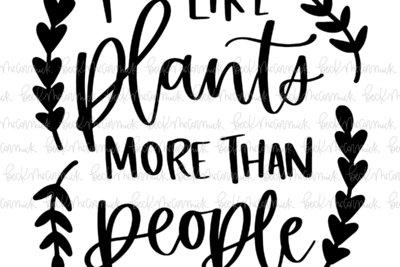 I LIKE
plants
MORE THAN
people